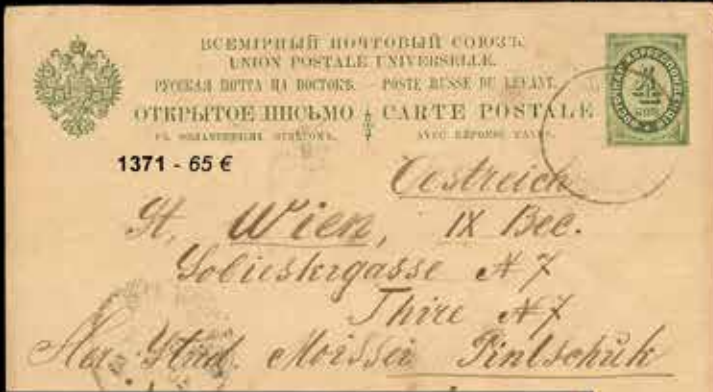 ВСЕМІРНЫЙ ПОЧТОВЫЙ СОЮЗЪ.
UNION POSTALE UNIVERSELLE.
РУССКАЯ ПОЧТА НА ВОСТОКѢ. POSTE RUSSE DU LEVANT.
ОТКРЫТОЕ ПИСЬМО CARTE POSTALE
СЪ ОПЛАЧЕННЫМЪ ОТВѢТОМЪ. AVEC RÉPONSE PAYÉE.
4
КОП.
ВОСТОЧНАЯ КОРРЕСПОНДЕНЦІЯ
1371 - 65 €
Oestreich
St. Wien, IX Bec.
Sobieskigasse № 7
Thire № 7
Her. Stud. Moissei Pintschuk